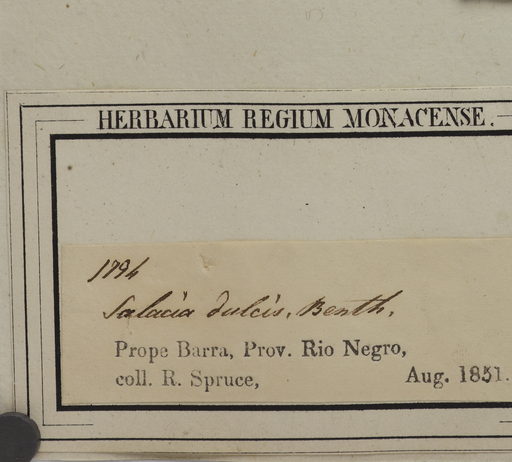 HERBARIUM REGIUM MONACENSE.
1794
Salacia dulcis, Benth.
Prope Barra, Prov. Rio Negro,
coll. R. Spruce, Aug. 1851.